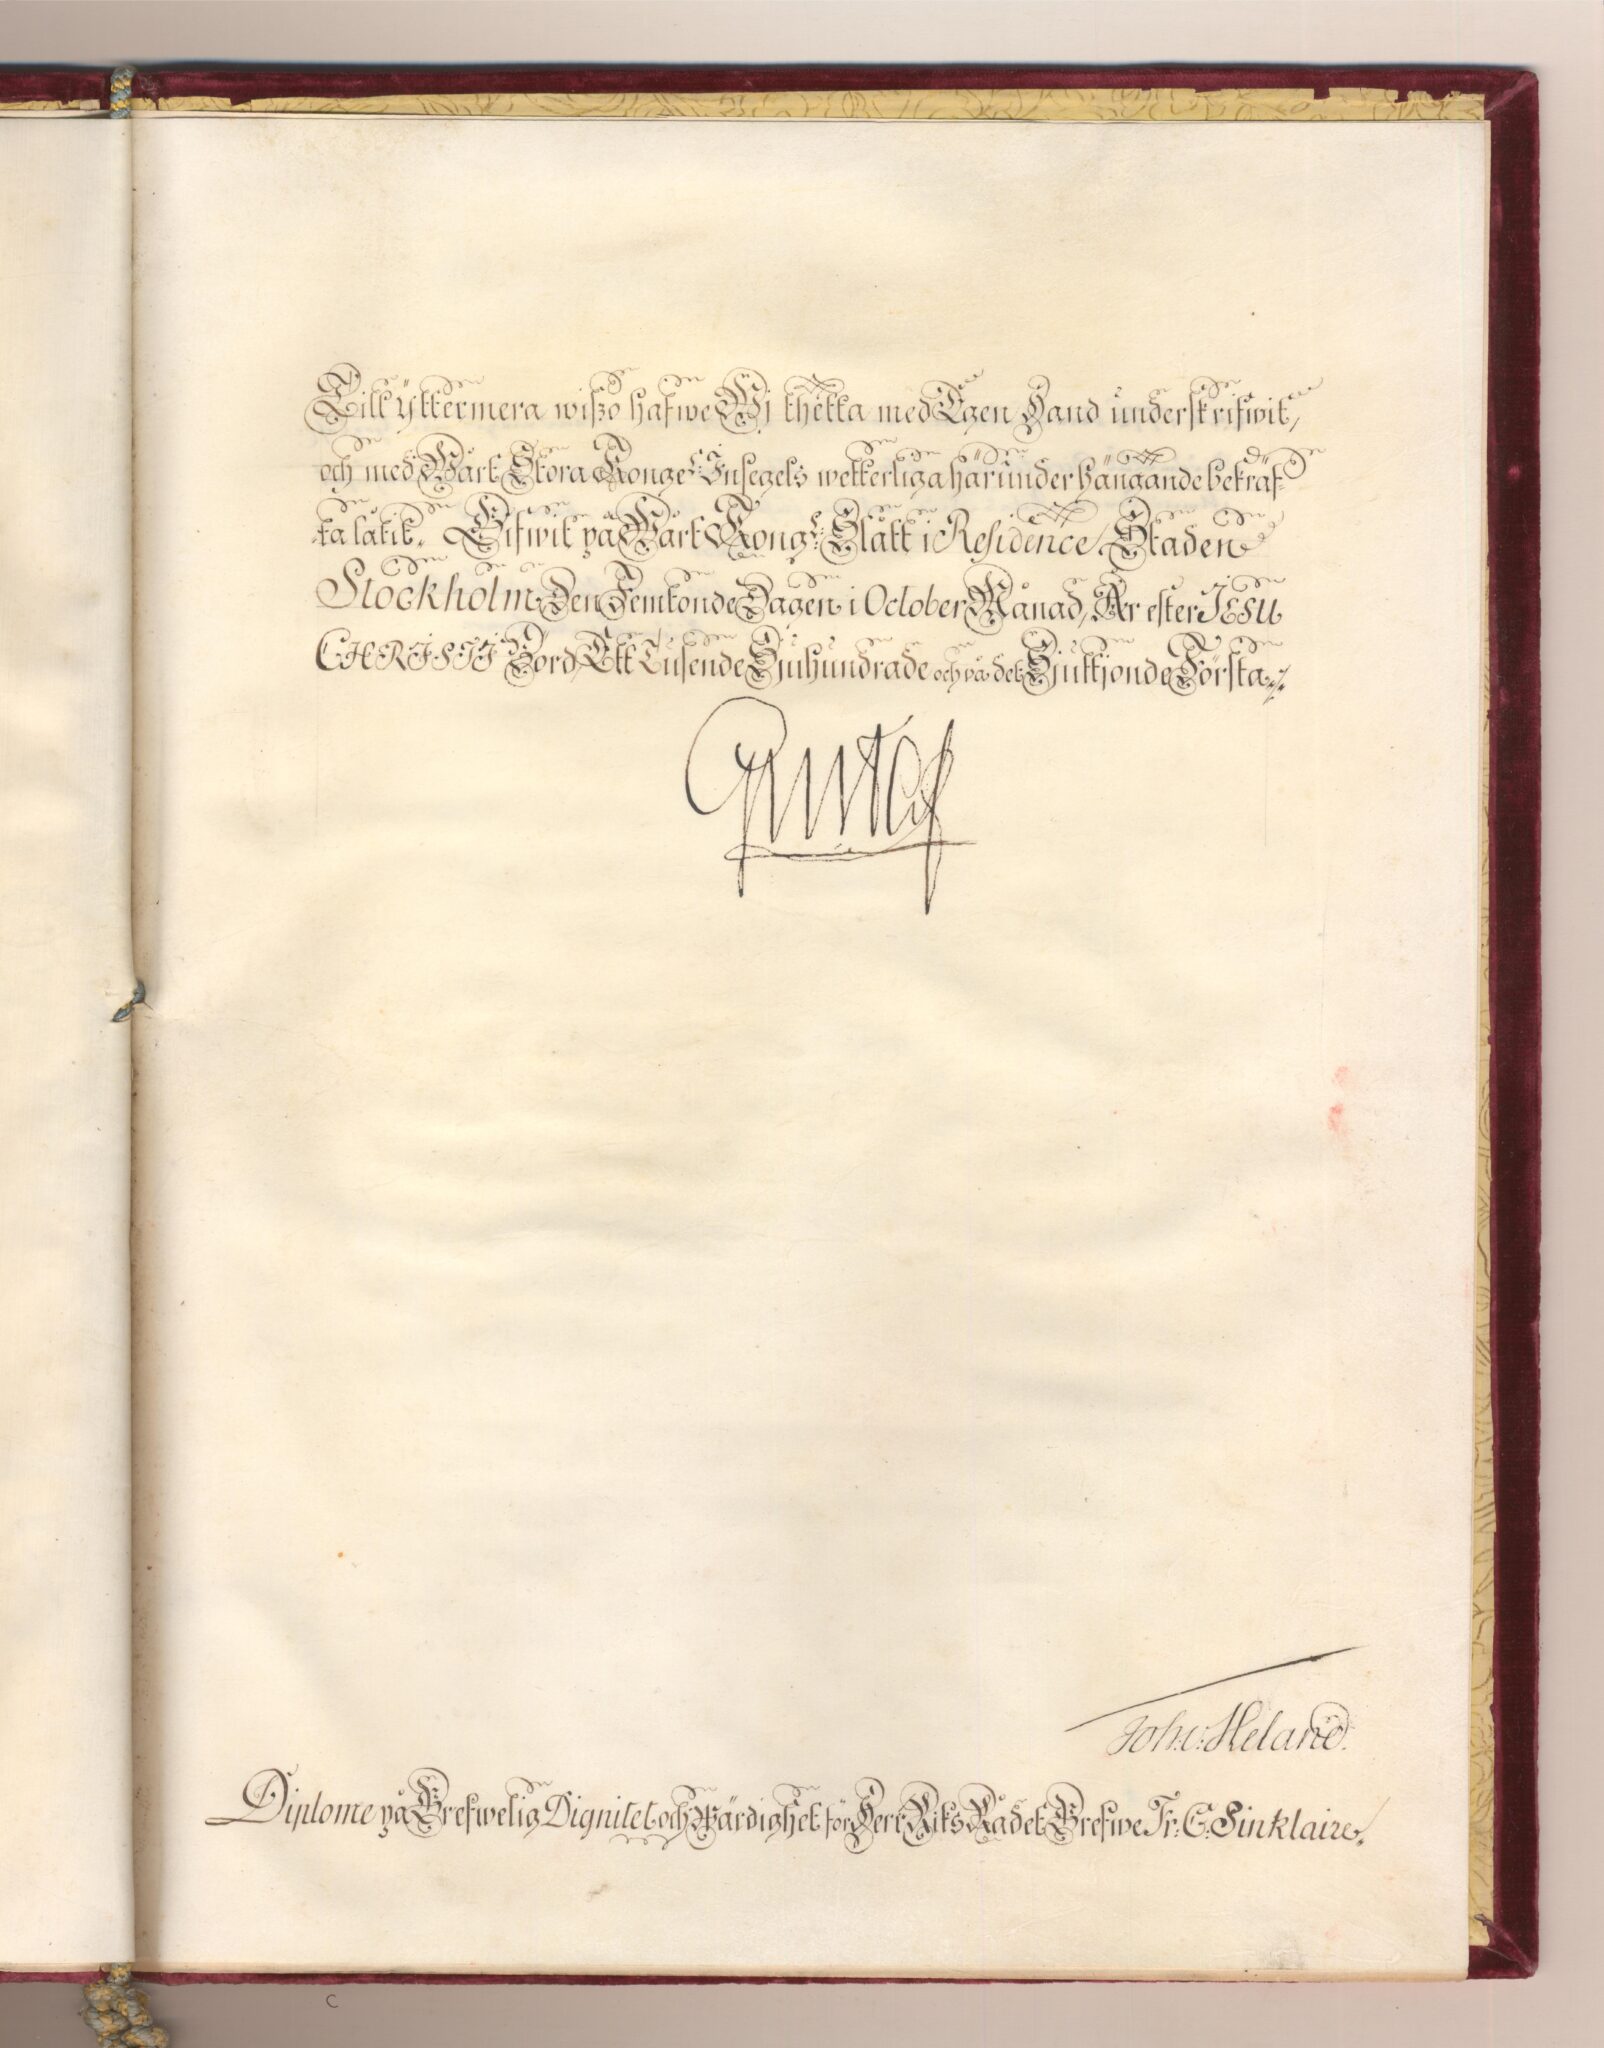 Till ÿttermera wiszo hafwe Wj thetta med Egen Hand underskrifwit,
och med Wårt Stora Konge.l: Insegels wetterliga här under hängande bekräf-
ta låtit. Gifwit på Wårt Kong.l: Slått i Residence Staden
Stockholm den Femtonde Dagen i October Månad, År efter JESU
CHRISTJ Bord, Ett Tusende Sjuhundrade och på det Sjuttjonde Första.
Gustaf
Joh: v: Heland.
Diplome på Grefwelig Dignitet och Wärdighet för Herr Riks Rådet Grefwe Fr: C: Sinklaire.
C